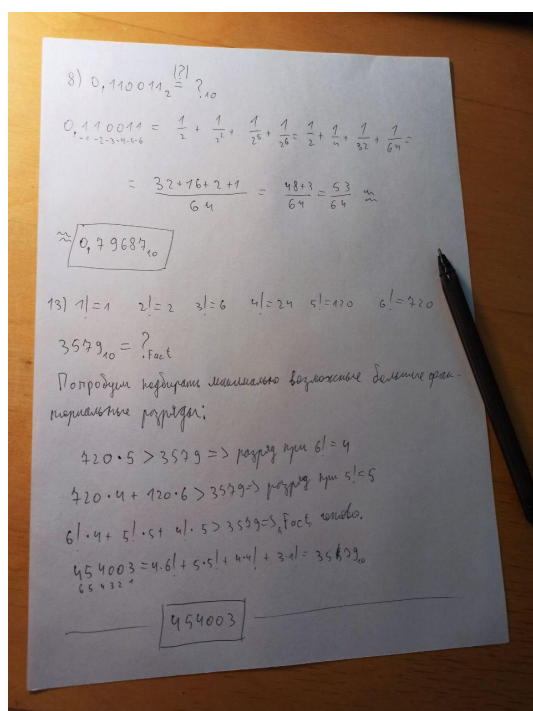 8) 0,110011₂ (?)= ?₁₀
0,110011 = 1/2 + 1/2² + 1/2⁵ + 1/2⁶ = 1/2 + 1/4 + 1/32 + 1/64 =
-1-2-3-4-5-6
= (32+16+2+1)/64 = (48+3)/64 = 53/64 ≈
≈ 0,79687₁₀
13) 1!=1 2!=2 3!=6 4!=24 5!=120 6!=720
3579₁₀ = ?Fact
Попробуем подбирать максимально возможные большие фак-
ториальные разряды:
720·5 > 3579 => разряд при 6! = 4
720·4 + 120·6 > 3579 => разряд при 5! = 5
6!·4 + 5!·5 + 4!·5 > 3579 => Fact готово.
454003 = 4·6! + 5·5! + 4·4! + 3·1! = 3579₁₀
6 5 4 3 2 1
454003